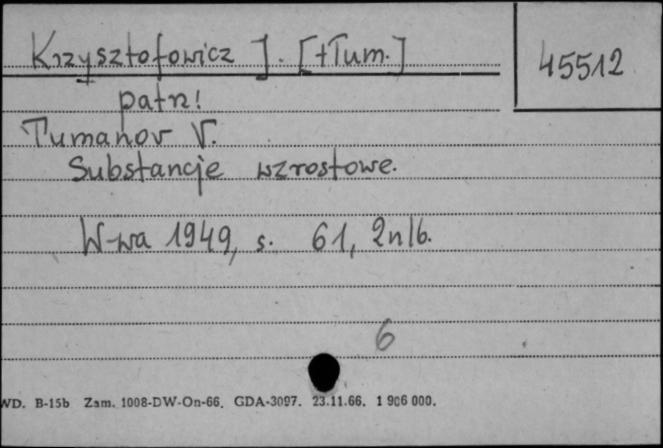 Krzysztofowicz J. [tłum.]
45512
patrz!
Tumanov V.
Substancje wzrostowe.
W-wa 1949, s. 61, 2nlb.
6
WD. B-15b Zam. 1008-DW-On-66. GDA-3097. 23.11.66. 1 906 000.